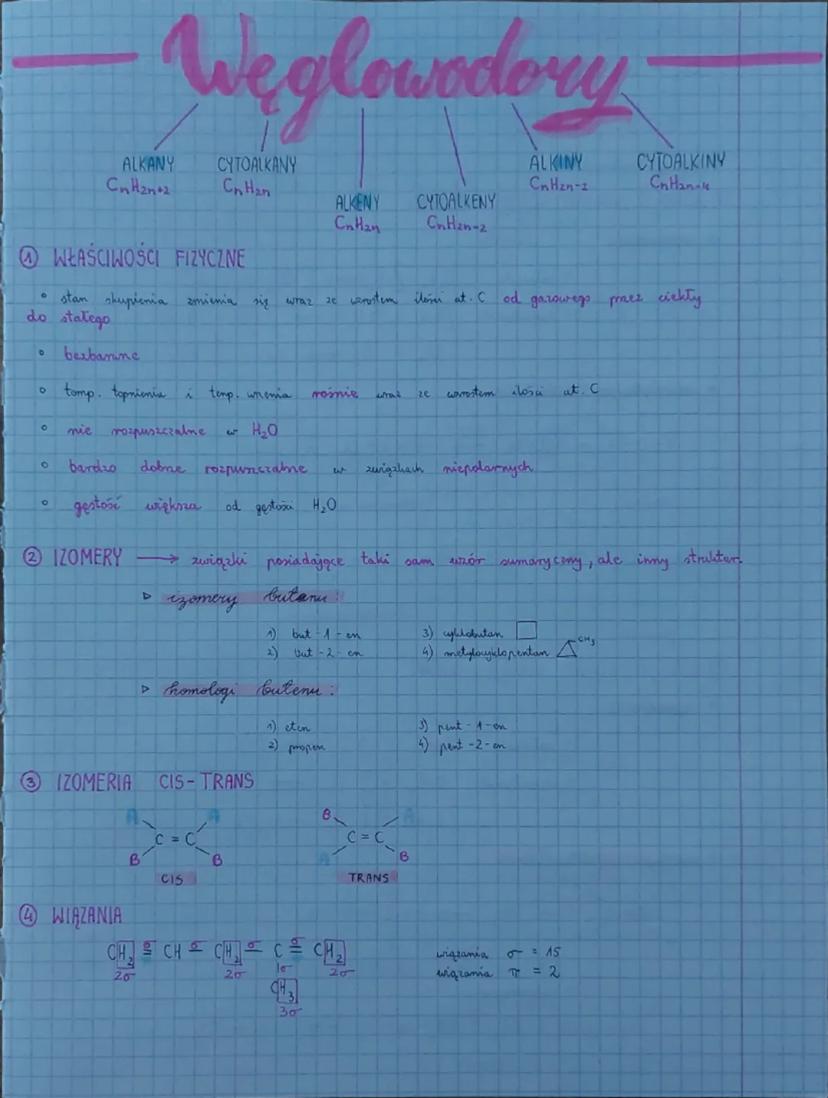 Węglowodory
ALKANY CYTOALKANY ALKINY CYTOALKINY
CnH2n+2 CnH2n CnH2n-2 CnH2n-4
ALKENY CYTOALKENY
CnH2n CnH2n-2
① WŁAŚCIWOŚCI FIZYCZNE
• stan skupienia zmienia się wraz ze wzrostem ilości at. C od gazowego przez ciekły
do stałego
• bezbarwne
• temp. topnienia i temp. wrzenia rośnie wraz ze wzrostem ilości at. C
• nie rozpuszczalne w H₂O
• bardzo dobrze rozpuszczalne w związkach niepolarnych
• gęstość większa od gęstości H₂O
② IZOMERY → związki posiadające taki sam wzór sumaryczny, ale inny struktur.
▷ izomery butanu:
1) but-1-en 3) cyklobutan
2) but-2-en 4) metylocyklopentan CH₃
▷ homologi butenu:
1) eten 3) pent-1-en
2) propen 4) pent-2-en
③ IZOMERIA CIS-TRANS
A A B A
C = C C = C
B B A B
CIS TRANS
④ WIĄZANIA
σ σ σ σ
CH₂ = CH - CH₂ - C = CH₂ wiązania σ = 15
2σ 2σ 1σ 2σ wiązania π = 2
CH₃
3σ